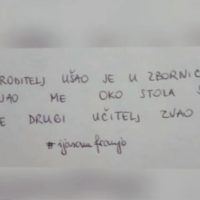 RODITELJ UŠAO JE U ZBORNIC
ME OKO STOLA
DRUGI UČITELJ ZVAO
#ijasamfranjo